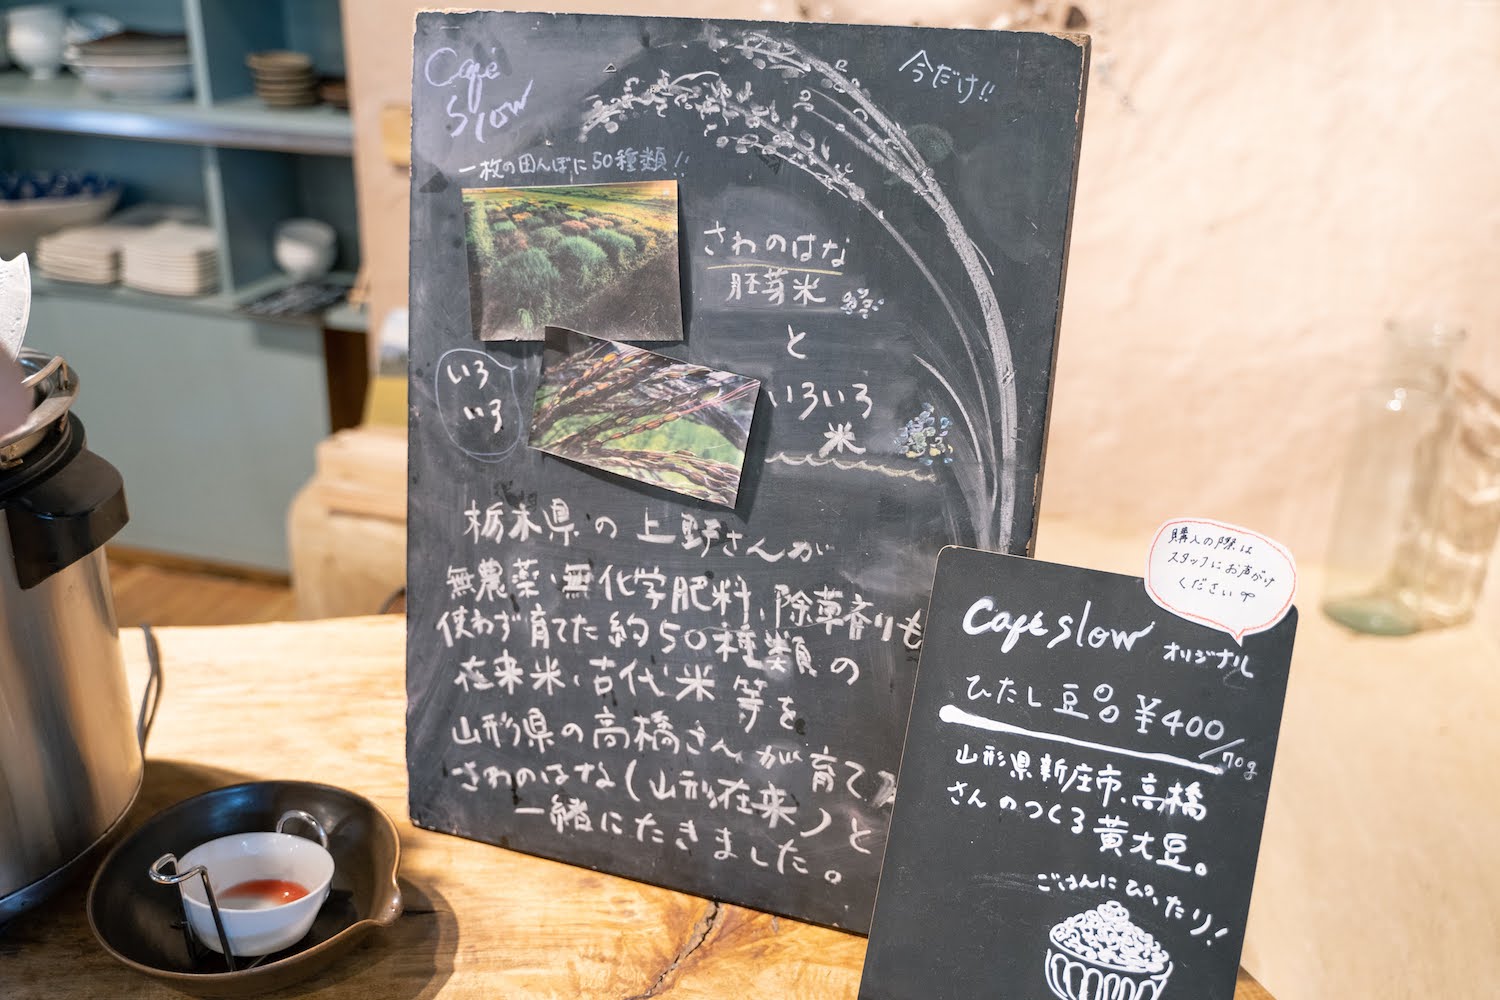 Café
Slow
今だけ!!
一枚の田んぼに50種類!!
さわのはな
胚芽米
と
いろいろ
米
いろ
いろ
栃木県の上野さんが
無農薬・無化学肥料、除草剤も
使わず育てた約50種類の
在来米・古代米等を
山形県の高橋さんが育て
さわのはな(山形在来)と
一緒にたきました。
購入の際は
スタッフにお声がけ
ください
Café slow オリジナル
ひたし豆 ¥400/70g
山形県新庄市、高橋
さんのつくる黄大豆。
ごはんにぴったり!